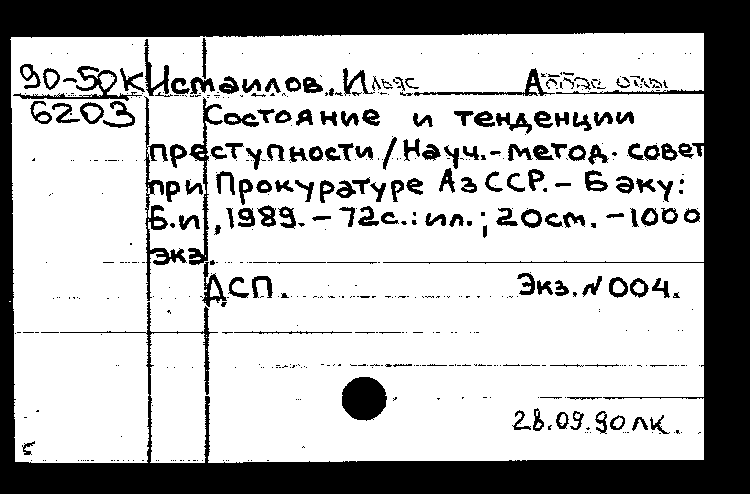 90-50К Исмаилов, Ильяс Аббас оглы
6203 Состояние и тенденции
преступности / Науч.-метод. совет
при Прокуратуре АзССР. - Баку:
Б.и, 1989. - 72с.: ил.; 20см. - 1000
экз.
ДСП. Экз. N 004.
28.09.90 лк.
Б